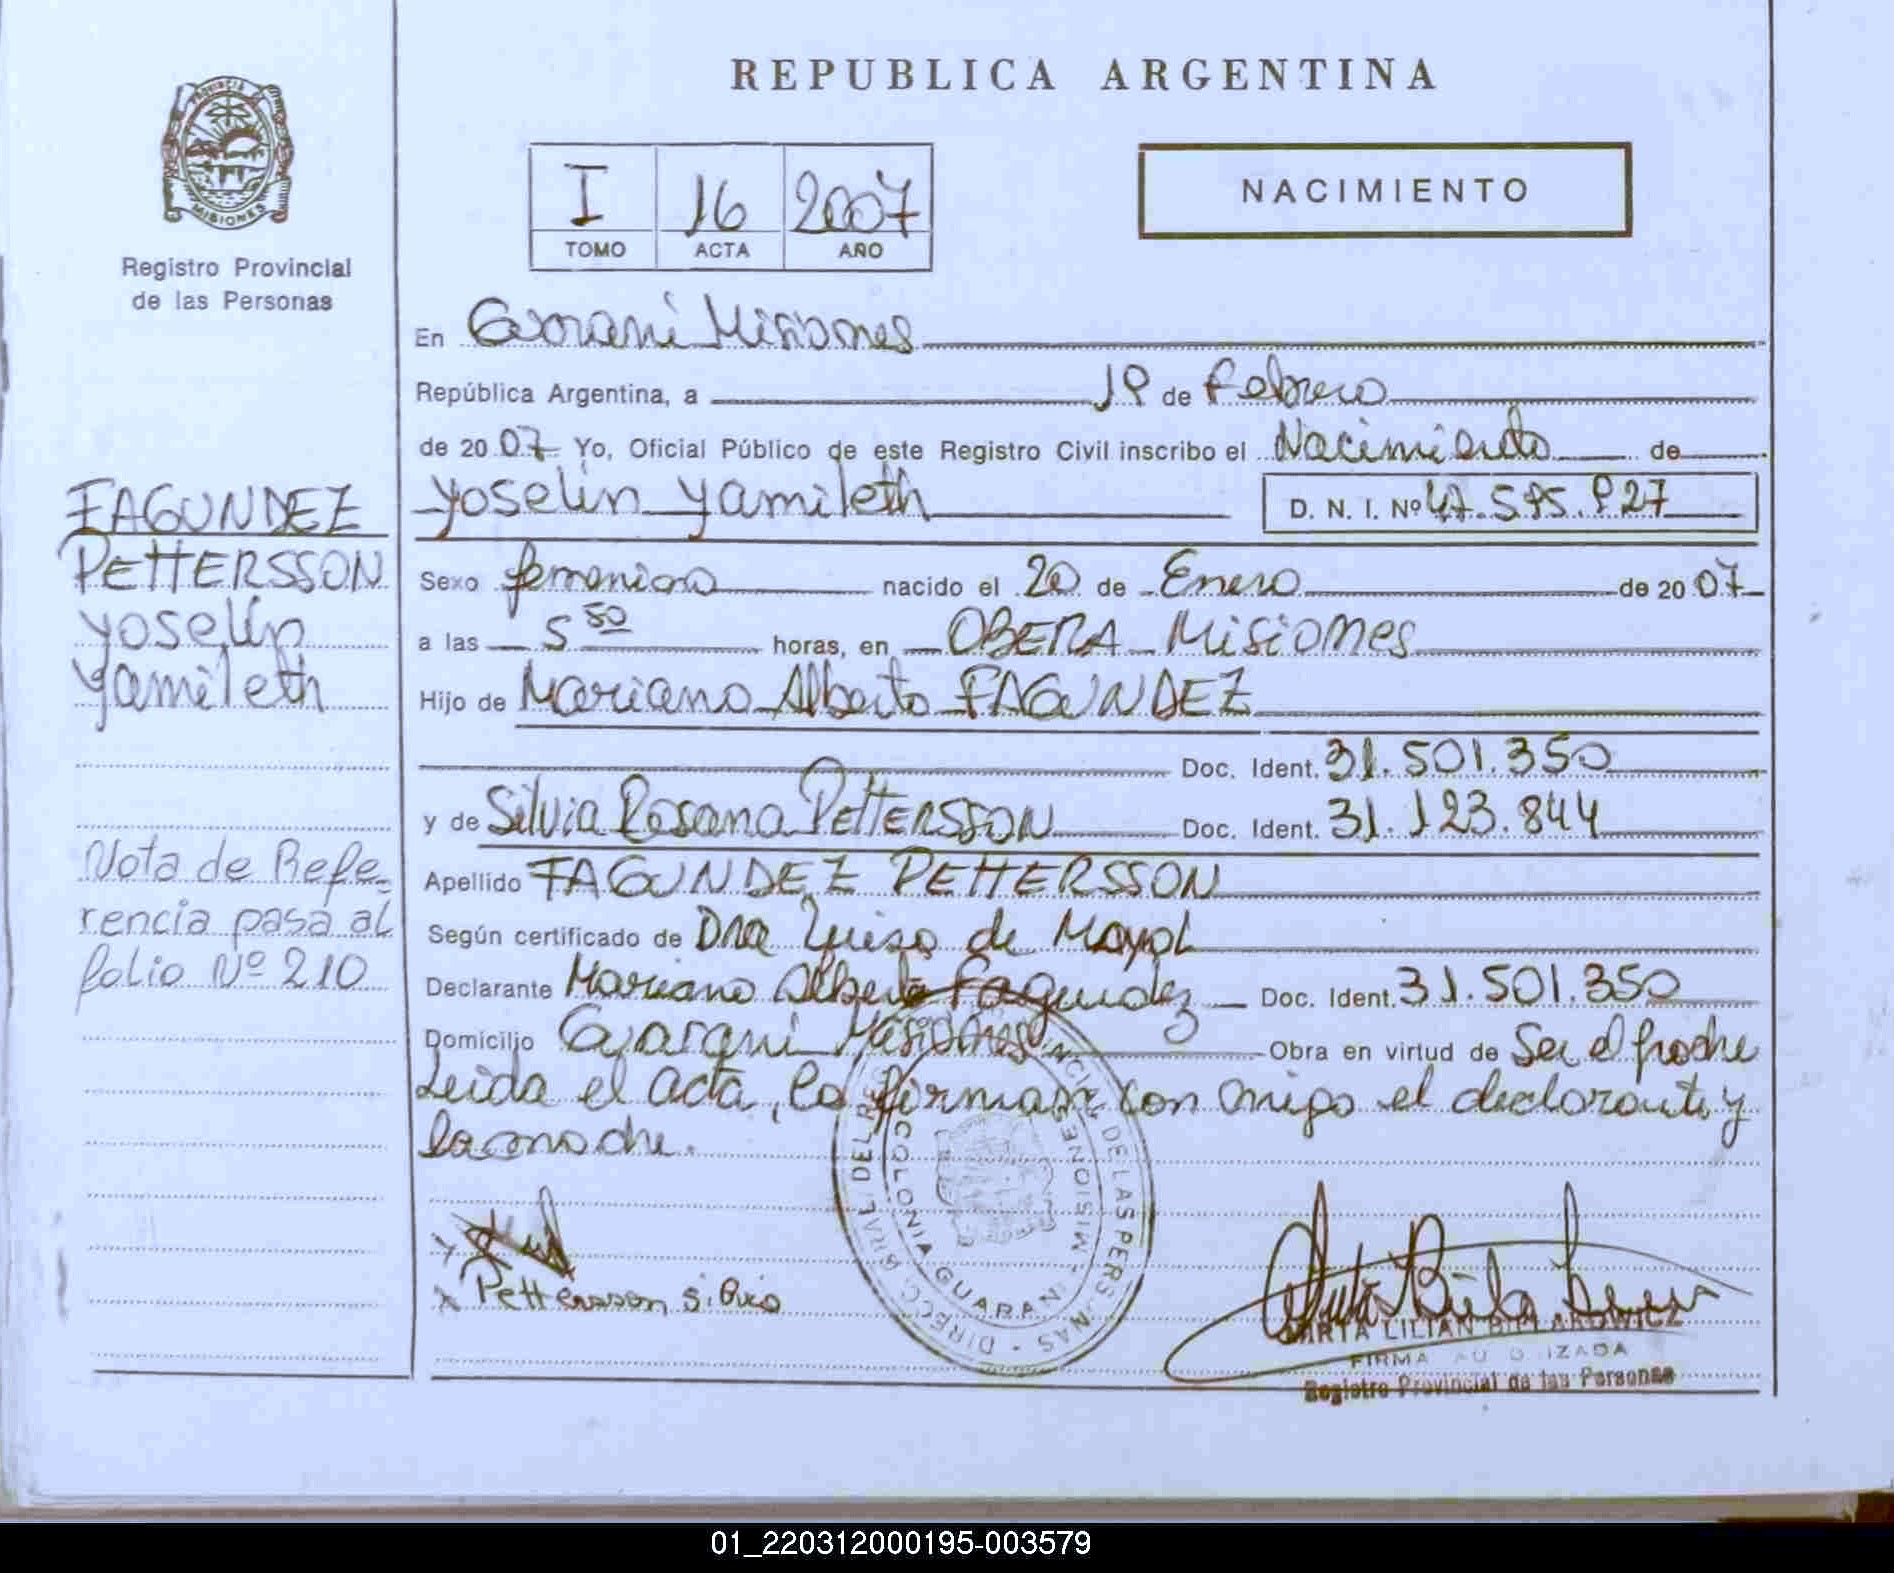 REPUBLICA ARGENTINA
PROVINCIA
MISIONES
Registro Provincial
de las Personas
I 16 2007
TOMO ACTA AÑO
NACIMIENTO
En Guarani Misiones
República Argentina, a 1º de Febrero
de 2007 Yo, Oficial Público de este Registro Civil inscribo el Nacimiento de
FAGUNDEZ
PETTERSSON
Yoselin
Yamileth
Nota de Refe-
rencia pasa al
folio Nº 210
Yoselin Yamileth D. N. I. Nº
Sexo femenino nacido el 20 de Enero de 2007
a las 5 50 horas, en OBERA Misiones
Hijo de Mariano Alberto FAGUNDEZ
Doc. Ident. 31.501.350
y de Silvia Rosana PETTERSSON Doc. Ident. 31.123.844
Apellido FAGUNDEZ PETTERSSON
Según certificado de Dra Luisa de Mayol
Declarante Mariano Alberto Fagundez Doc. Ident. 31.501.350
Domicilio Guarani Misiones Obra en virtud de Ser el padre
Leida el acta, la firman con migo el declarante y
la madre.
x
x Pettersson Silvia
COLONIA GUARANI - MISIONES
DE LAS PERSONAS
LILIAN
FIRMA AUTORIZADA
Registro Provincial de las Personas
01_220312000195-003579